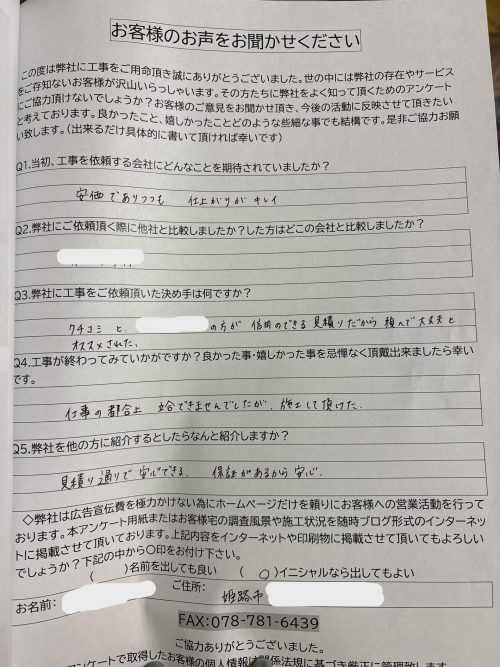 お客様のお声をお聞かせください
この度は弊社に工事をご用命頂き誠にありがとうございました。世の中には弊社の存在やサービス
をご存知ないお客様が沢山いらっしゃいます。その方たちに弊社をよく知って頂くためのアンケート
にご協力頂けないでしょうか？お客様のご意見をお聞かせ頂き、今後の活動に反映させて頂きたい
と考えております。良かったこと、嬉しかったことどのような些細な事でも結構です。是非ご協力お願
い致します。（出来るだけ具体的に書いて頂ければ幸いです）
Q1.当初、工事を依頼する会社にどんなことを期待されていましたか？
安価でありつつも 仕上がりがキレイ
Q2.弊社にご依頼頂く際に他社と比較しましたか？した方はどこの会社と比較しましたか？
Q3.弊社に工事をご依頼頂いた決め手は何ですか？
クチコミと、 の方が 信用のできる見積りだから 頼んで大丈夫と
オススメされた、
Q4.工事が終わってみていかがですか？良かった事・嬉しかった事を忌憚なく頂戴出来ましたら幸い
です。
仕事の都合上 立合できませんでしたが、施工して頂けた.
Q5.弊社を他の方に紹介するとしたらなんと紹介しますか？
見積り通りで安心できる. 保証があるから安心.
◇弊社は広告宣伝費を極力かけない為にホームページだけを頼りにお客様への営業活動を行って
おります。本アンケート用紙またはお客様宅の調査風景や施工状況を随時ブログ形式のインターネッ
トに掲載させて頂いております。上記内容をインターネットや印刷物に掲載させて頂いてもよろしい
でしょうか？下記の中から〇印をお付け下さい。
（ ）名前を出しても良い （ 〇 ）イニシャルなら出してもよい
お名前： ご住所： 姫路市
FAX:078-781-6439
ご協力ありがとうございました。
アンケートで取得したお客様の個人情報は関係法規に基づき厳正に管理致します